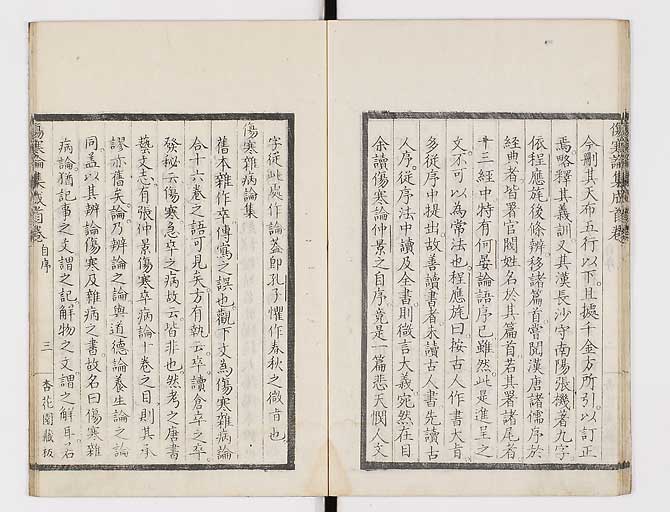 今刪其天布五行以下且據千金方所引以訂正
焉略釋其義訓又其漢長沙守南陽張機著九字
依程應旄後條辨移諸篇首嘗聞漢唐諸儒序於
經典者皆署官閥姓名於其篇首若其署諸尾者
十三經中特有何晏論語序已雖然此是進呈之
文不可以為常法也程應旄曰按古人作書大旨
多從序中提出故善讀書者未讀古人書先讀古
人序從序法中讀及全書則微言大義宛然在目
余讀傷寒論仲景之自序竟是一篇悲天憫人文
傷寒論集成首卷
字從此處作論蓋即孔子懼作春秋之微旨也
傷寒雜病論集
舊本雜作卒傳寫之誤也觀下文為傷寒雜病論
合十六卷之語可見矣方有執云卒讀倉卒之卒
發秘云傷寒急卒之病故云皆非也然考之唐書
藝文志有張仲景傷寒卒病論十卷之目則其承
謬亦舊矣論乃辨論之論與道德論養生論之論
同蓋以其辨論傷寒及雜病之書故名曰傷寒雜
病論猶記事之文謂之記解物之文謂之解耳若
傷寒論集成首卷 自序 三 杏花園藏板